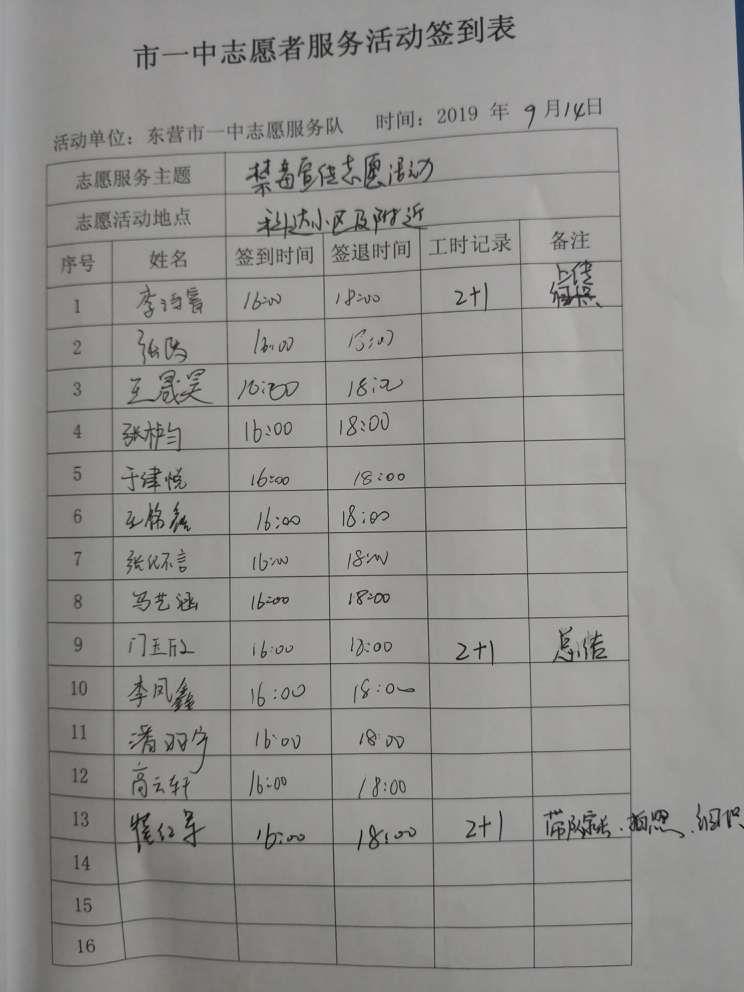 市一中志愿者服务活动签到表
活动单位：东营市一中志愿服务队 时间：2019 年 9 月 14 日
志愿服务主题 禁毒宣传志愿活动
志愿活动地点 科达小区及附近
序号 姓名 签到时间 签退时间 工时记录 备注
1 李 16:00 18:00 2+1 上传
2 张 16:00 18:00
3 王晟昊 16:00 18:00
4 张 16:00 18:00
5 于律悦 16:00 18:00
6 王铭鑫 16:00 18:00
7 张 16:00 18:00
8 马艺涵 16:00 18:00
9 门玉欣 16:00 18:00 2+1 总结
10 李凤鑫 16:00 18:00
11 潘羽宁 16:00 18:00
12 高云轩 16:00 18:00
13 崔红军 16:00 18:00 2+1 带队家长、拍照、组织
14
15
16